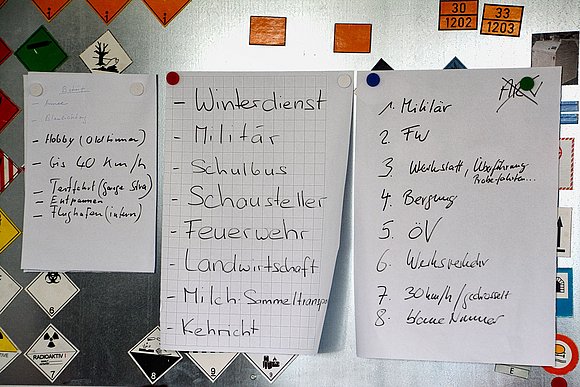 30
1202
33
1203
- Hobby (Oldtimer)
- bis 40 km/h
- Testfahrt (ganze Stra)
- Entpannen
- Flughafen (intern)
- Winterdienst
- Militär
- Schulbus
- Schausteller
- Feuerwehr
- Landwirtschaft
- Milch-Sammeltranspo
- Kehricht
ARV
1. Militär
2. FW
3. Werkstatt, Überführung
Probefahrten...
4. Bergung
5. ÖV
6. Werksverkehr
7. 30 km/h/gedrosselt
8. blaue Nummer
RADIOAKTIV I
7
6
8
9
E